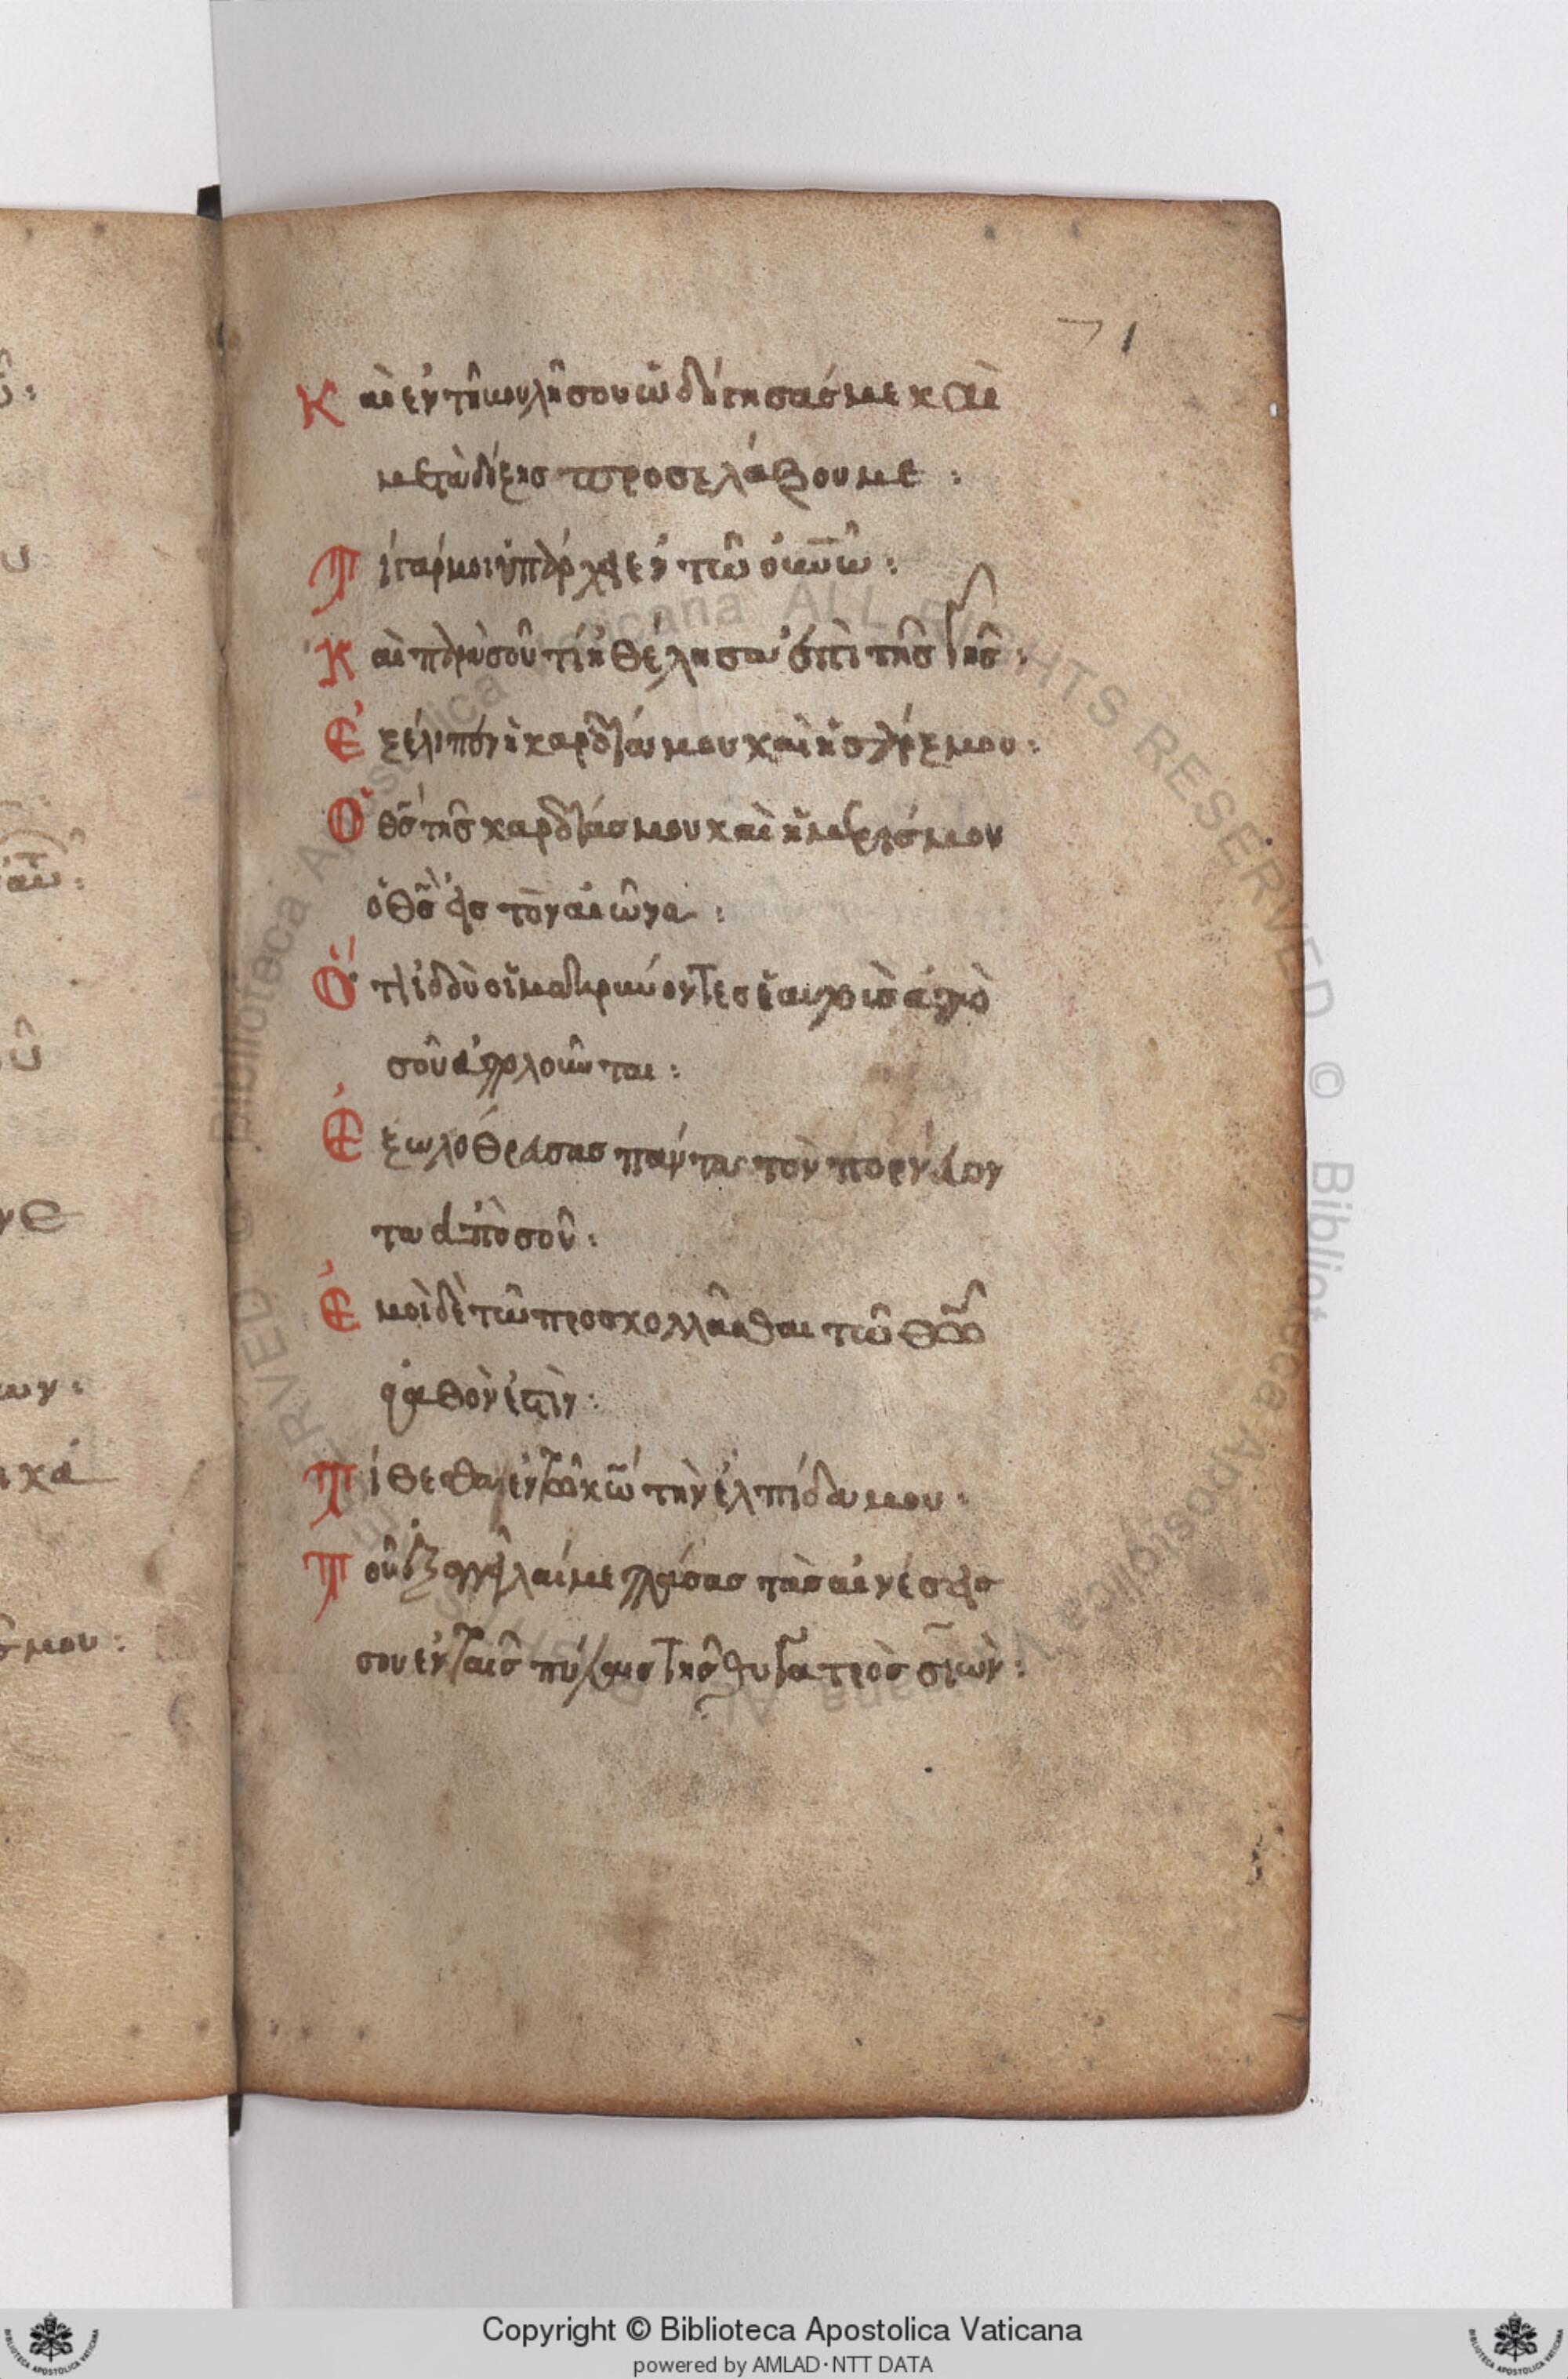 71
Καὶ ἐν τῆ βουλῆ σου ὡδήγησάς με καὶ
μετὰ δόξης προσελάβου με :
Τί γάρ μοι ὑπάρχει ἐν τῶ οὐνῶ :
Καὶ παρὰ σοῦ τί ἠθέλησα ἐπὶ τῆς γῆς :
Ἐξέλιπεν ἡ καρδία μου καὶ ἡ σάρξ μου :
Ὁ θς τῆς καρδίας μου καὶ ἡ μερίς μου
ὁ θς εἰς τὸν αἰῶνα :
Ὅτι ἰδοὺ οἱ μακρύνοντες ἑαυτοὺς ἀπὸ
σοῦ ἀπολοῦνται :
Ἐξωλόθρευσας πάντα τὸν πορνεύον
τα ἀπὸ σοῦ :
Ἐμοὶ δὲ τῶ προσκολλᾶσθαι τῶ θῶ
ἀγαθόν ἐστιν :
Τίθεσθαι ἐν τῶ κῶ τὴν ἐλπίδα μου :
Τοῦ ἐξαγγεῖλαί με πάσας τὰς αἰνέσεις
σου ἐν ταῖς πύλαις τῆς θυγατρὸς σιών :
Copyright © Biblioteca Apostolica Vaticana
powered by AMLAD·NTT DATA